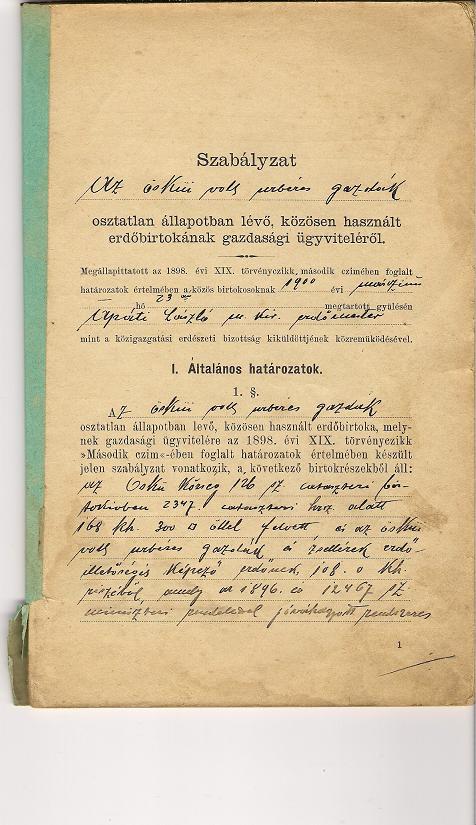 Szabályzat
Az öskui volt urbéres gazdák
osztatlan állapotban lévő, közösen használt
erdőbirtokának gazdasági ügyviteléről.
Megállapittatott az 1898. évi XIX. törvényczikk, második czimében foglalt
határozatok értelmében a közös birtokosoknak 1900 évi
hó 23 án megtartott gyülésén
László m. kir. erdőmester
mint a közigazgatási erdészeti bizottság kiküldöttjének közreműködésével.
I. Általános határozatok.
1. §.
Az öskui volt urbéres gazdák
osztatlan állapotban levő, közösen használt erdőbirtoka, mely-
nek gazdasági ügyvitelére az 1898. évi XIX. törvényczikk
»Második czim«-ében foglalt határozatok értelmében készült
jelen szabályzat vonatkozik, a következő birtokrészekből áll:
az Öskü község 126 sz. cataszteri bir-
tokivban 2347. cataszteri hrsz. alatt
168 kh. 300 □ öllel felvett és az öskui
volt urbéres gazdák és zsellérek erdő-
illetőségét képező erdőnek, 108.0 kh.
részéből, amely az 1896. év 12467 sz.
miniszteri rendelettel jóváhagyott rendszeres
1